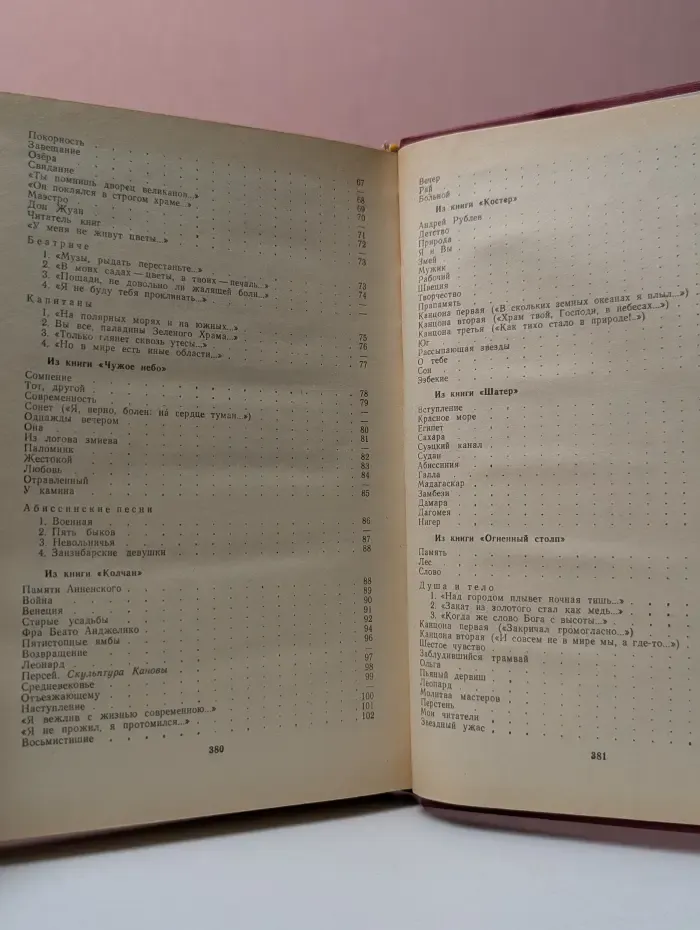 Покорность
Завещание
Озёра
Свидание 67
«Ты помнишь дворец великанов...» —
«Он поклялся в строгом храме...» 68
Маэстро 69
Дон Жуан 70
Читатель книг —
«У меня не живут цветы...» 71
Беатриче 72
1. «Музы, рыдать перестаньте...» 73
2. «В моих садах — цветы, в твоих — печаль...» —
3. «Пощади, не довольно ли жалящей боли...» 73
4. «Я не буду тебя проклинать...» 74
Капитаны
1. «На полярных морях и на южных...» —
2. Вы все, паладины Зеленого Храма...» 75
3. «Только глянет сквозь утесы...» 76
4. «Но в мире есть иные области...» 77
Из книги «Чужое небо»
Сомнение —
Тот, другой 78
Современность 79
Сонет («Я, верно, болен: на сердце туман...») —
Однажды вечером —
Она 80
Из логова змиева 81
Паломник —
Жестокой 82
Любовь 83
Отравленный 84
У камина —
85
Абиссинские песни
1. Военная 86
2. Пять быков —
3. Невольничья 87
4. Занзибарские девушки 88
Из книги «Колчан»
Памяти Анненского 88
Война 89
Венеция 90
Старые усадьбы 91
Фра Беато Анджелико 92
Пятистопные ямбы 94
Возвращение 96
Леонард —
Персей. Скульптура Кановы 97
Средневековье 98
Отъезжающему 99
Наступление —
«Я вежлив с жизнью современною...» 100
«Я не прожил, я протомился...» 101
Восьмистишие 102
380
Вечер
Рай
Больной
Из книги «Костер»
Андрей Рублев
Детство
Природа
Я и Вы
Змей
Мужик
Рабочий
Швеция
Творчество
Прапамять
Канцона первая («В скольких земных океанах я плыл...»)
Канцона вторая («Храм твой, Господи, в небесах...»)
Канцона третья («Как тихо стало в природе!..»)
Юг
Рассыпающая звезды
О тебе
Сон
Эзбекие
Из книги «Шатер»
Вступление
Красное море
Египет
Сахара
Суэцкий канал
Судан
Абиссиния
Галла
Мадагаскар
Замбези
Дамара
Дагомея
Нигер
Из книги «Огненный столп»
Память
Лес
Слово
Душа и тело
1. «Над городом плывет ночная тишь...»
2. «Закат из золотого стал как медь...»
3. «Когда же слово Бога с высоты...»
Канцона первая («Закричал громогласно...»)
Канцона вторая («И совсем не в мире мы, а где-то...»)
Шестое чувство
Заблудившийся трамвай
Ольга
Пьяный дервиш
Леопард
Молитва мастеров
Перстень
Мои читатели
Звездный ужас
381